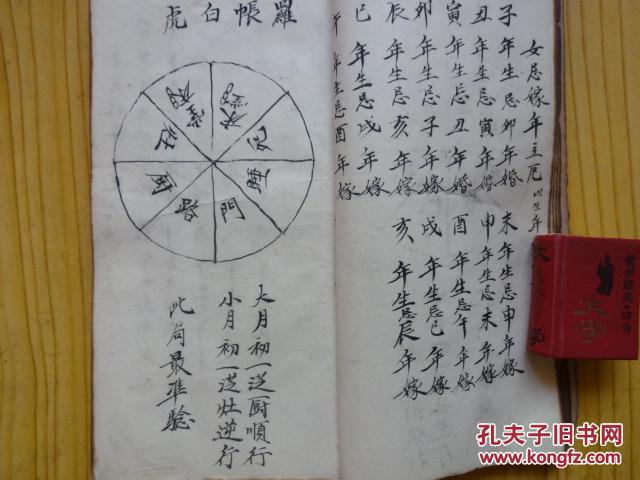 女忌嫁年主厄 以生年
子年生忌卯年婚
丑年生忌寅年婚
寅年生忌丑年婚
卯年生忌子年嫁
辰年生忌亥年嫁
巳年生忌戌年嫁
年生忌酉年嫁
未年生忌申年嫁
申年生忌未年嫁
酉年生忌午年嫁
戌年生忌巳年嫁
亥年生忌辰年嫁
羅帳白虎
睡
門
路
大月初一從厨順行
小月初一從灶逆行
此局最準驗
孔夫子旧书网
www.kongfz.com